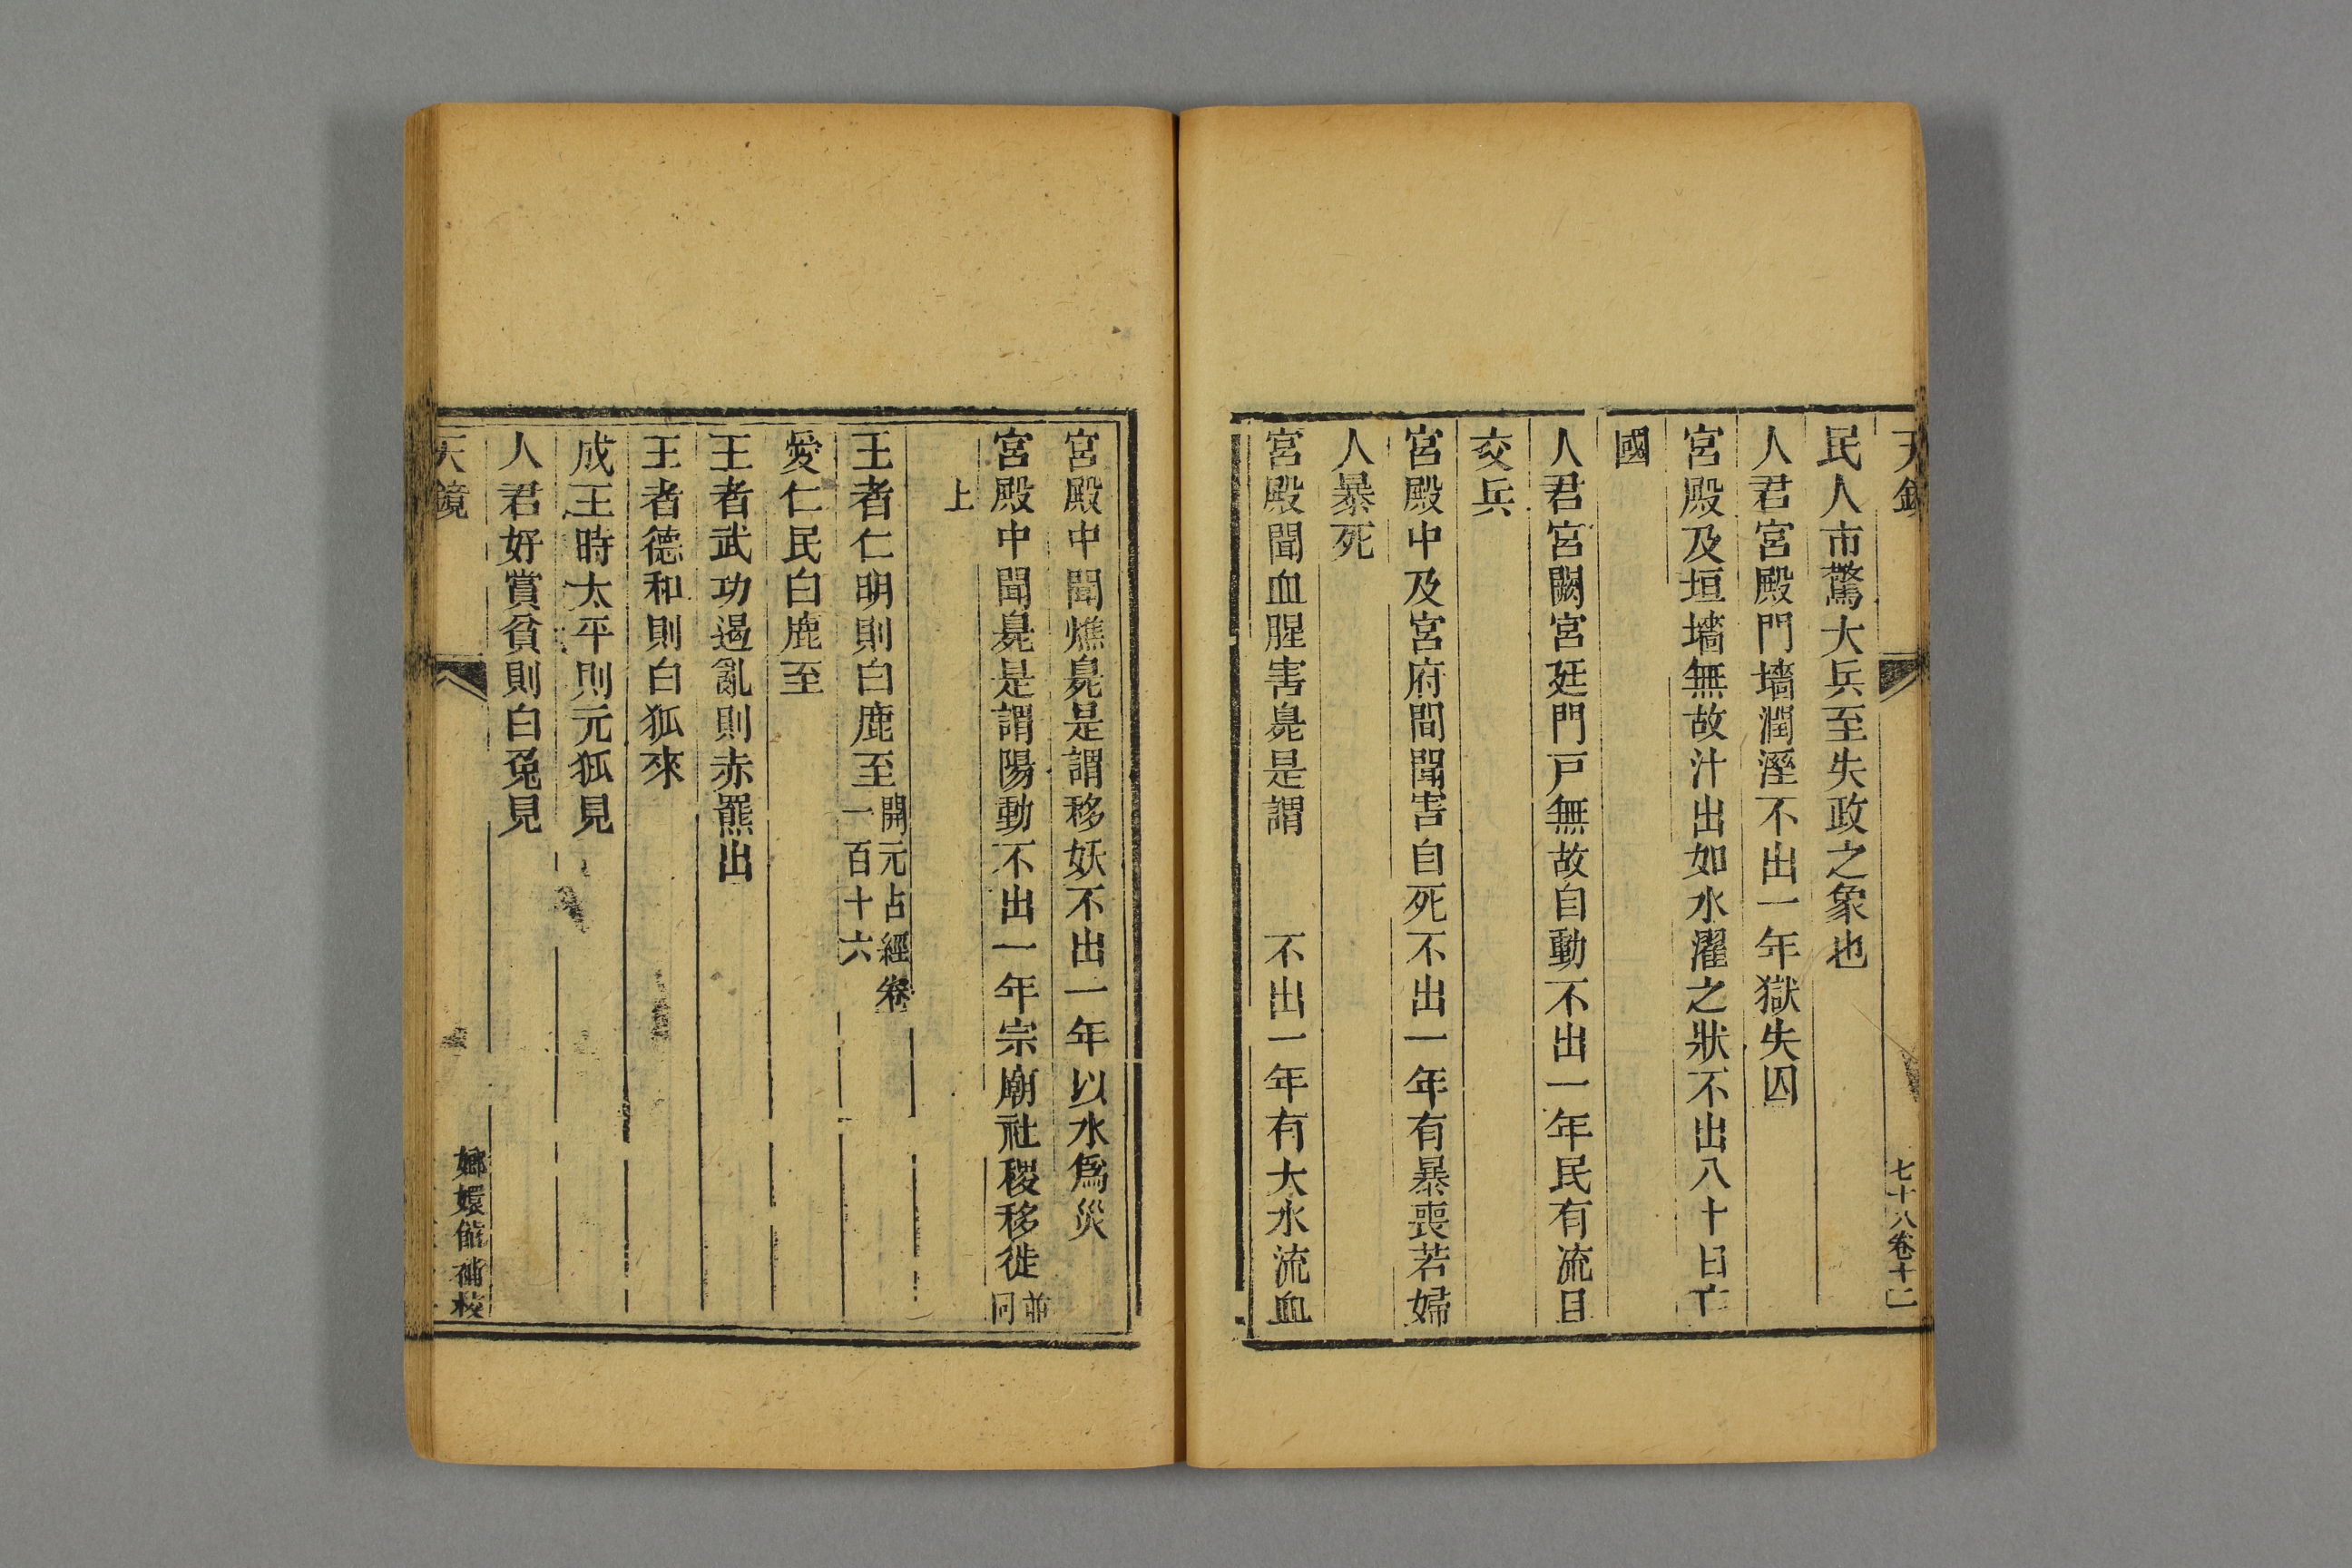 天鏡
七十八卷十二
民人市驚大兵至失政之象也
人君宮殿門墻潤溼不出一年獄失囚
宮殿及垣墻無故汁出如水濯之狀不出八十日亡
國
人君宮闕宮廷門戸無故自動不出一年民有流日
交兵
宮殿中及宮府間聞害自死不出一年有暴喪若婦
人暴死
宮殿聞血腥害臰是謂　不出一年有大水流血
宮殿中聞燋臰是謂移妖不出一年以水爲災
宮殿中聞臰是謂陽動不出一年宗廟社稷移徙並同
上
王者仁明則白鹿至開元占經卷一百十六
愛仁民白鹿至
王者武功遏亂則赤羆出
王者德和則白狐來
成王時太平則元狐見
人君好賞貧則白兔見
天鏡
嫏嬛館補校